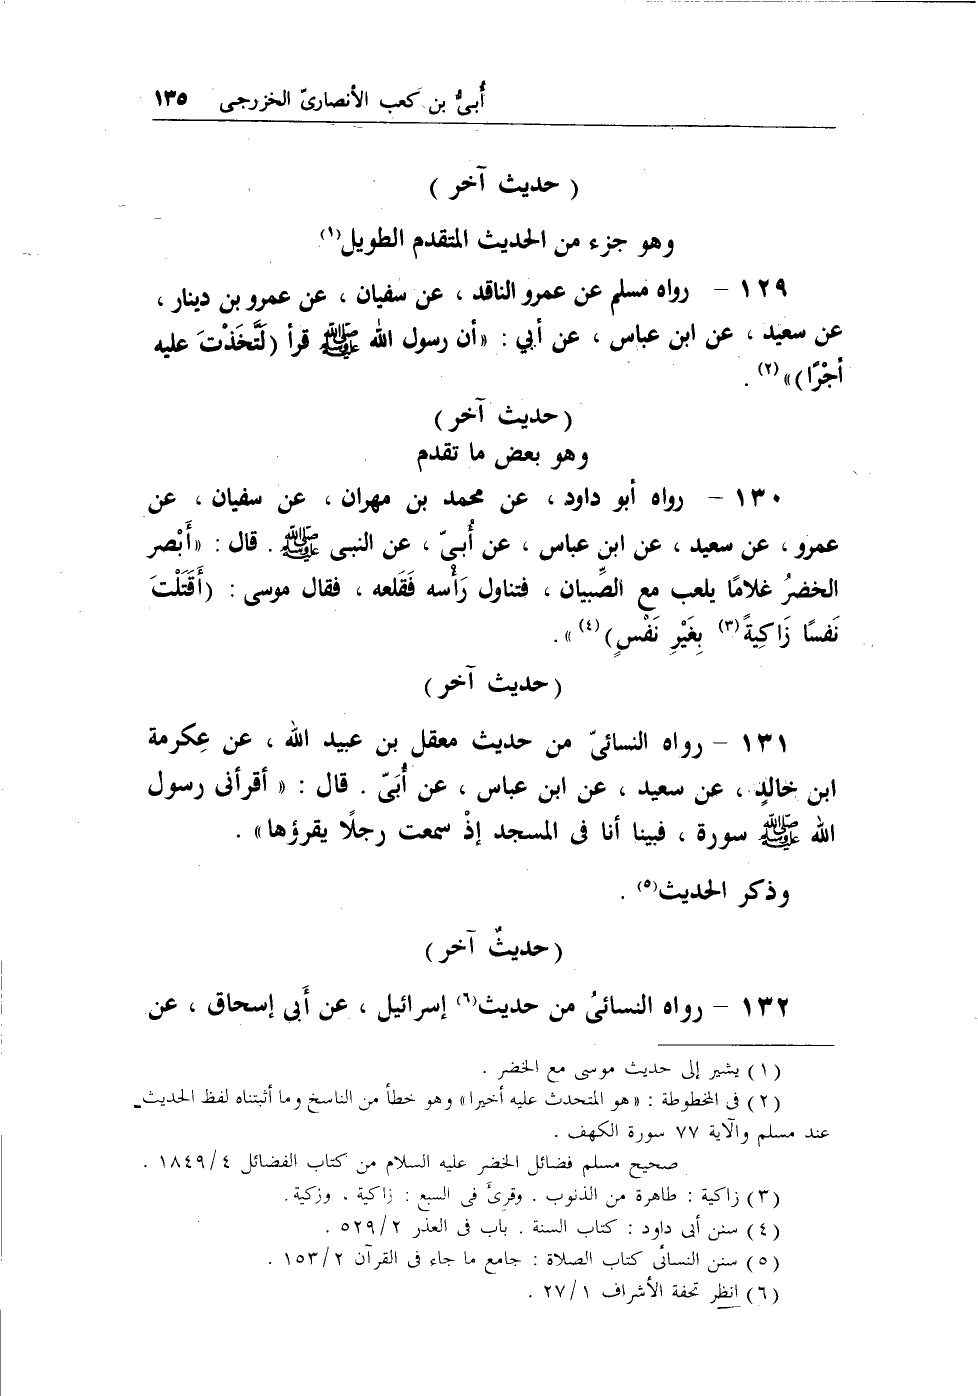 أُبىُّ بن كعب الأنصارىّ الخزرجى ١٣٥
( حديث آخر )
وهو جزء من الحديث المتقدم الطويل(١)
١٢٩ – رواه مسلم عن عمرو الناقد ، عن سفيان ، عن عمرو بن دينار ،
عن سعيد ، عن ابن عباس ، عن أبي : «أن رسول الله ﷺ قرأ (لَتَّخَذْتَ عليه
أجْرًا)»(٢) .
(حديث آخر )
وهو بعض ما تقدم
١٣٠ – رواه أبو داود ، عن محمد بن مهران ، عن سفيان ، عن
عمرو ، عن سعيد ، عن ابن عباس ، عن أُبىّ ، عن النبى ﷺ . قال : «أَبْصر
الخضرُ غلامًا يلعب مع الصِّبيان ، فتناول رَأْسه فَقَلعه ، فقال موسى : (أَقَتَلْتَ
نَفسًا زَاكِيةً(٣) بِغَيْرِ نَفْسٍ)(٤) » .
(حديث آخر )
١٣١ – رواه النسائىّ من حديث معقل بن عبيد الله ، عن عِكرمة
ابن خالدٍ ، عن سعيد ، عن ابن عباس ، عن أُبَىّ . قال : « أقرأنى رسول
الله ﷺ سورة ، فبينا أنا فى المسجد إذْ سمعت رجلًا يقرؤها» .
وذكر الحديث(٥) .
(حديثٌ آخر )
١٣٢ – رواه النسائىُ من حديث(٦) إسرائيل ، عن أَبى إسحاق ، عن
(١) يشير إلى حديث موسى مع الخضر .
(٢) فى المخطوطة : «هو المتحدث عليه أخيرا» وهو خطأ من الناسخ وما أثبتناه لفظ الحديث
عند مسلم والآية ٧٧ سورة الكهف .
صحيح مسلم فضائل الخضر عليه السلام من كتاب الفضائل ١٨٤٩/٤ .
(٣) زاكية : طاهرة من الذنوب . وقرئ فى السبع : زاكية ، وزكية .
(٤) سنن أبى داود : كتاب السنة . باب فى العذر ٥٢٩/٢ .
(٥) سنن النسائى كتاب الصلاة : جامع ما جاء فى القرآن ١٥٣/٢ .
(٦) انظر تحفة الأشراف ٢٧/١ .